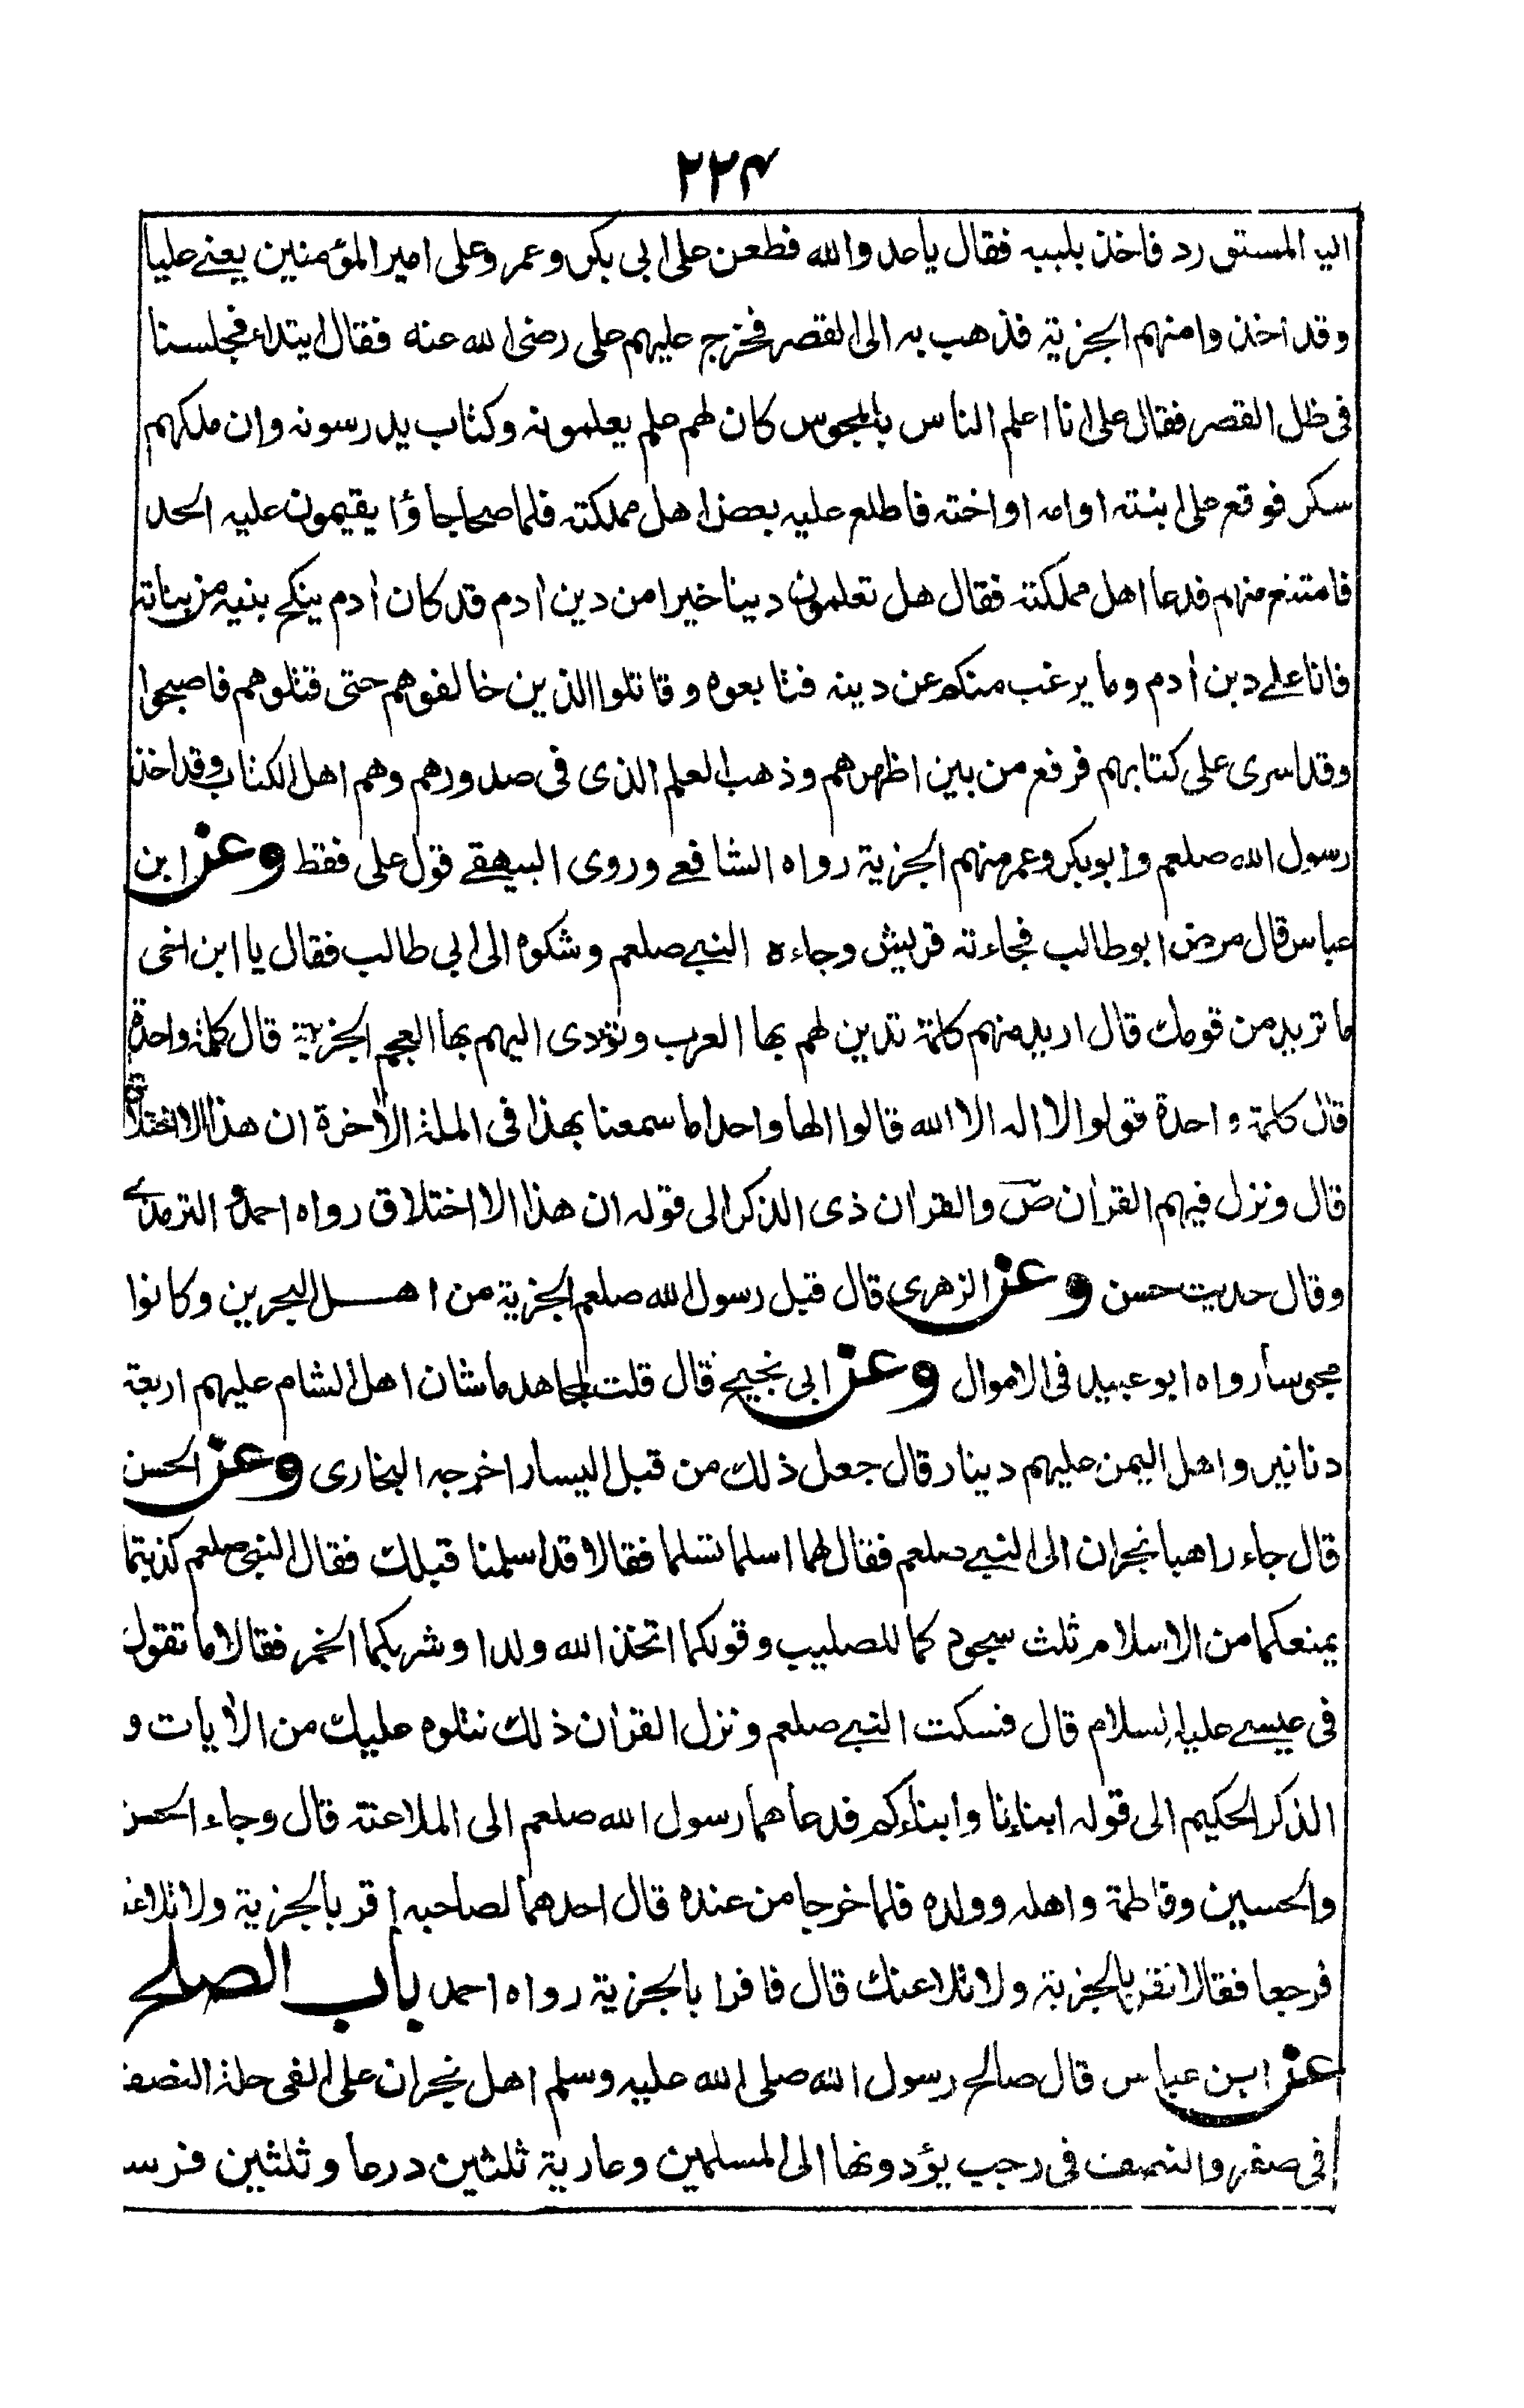 ۲۲۴
اليه المستورد فاخذ بلببه فقال يا عدو الله فطعن على ابى بكر وعمر وعلى امير المؤمنين يعنے عليا
وقد اخذوا منهم الجزية فذهب به الى القصر فخرج عليهم على رضى الله عنه فقال ابتداء فجلسنا
فى ظل القصر فقال على انا اعلم الناس بالمجوس كان لهم علم يعلمونه وكتاب يدرسونه وان ملكهم
سكر فوقع على ابنته او امه او اخته فاطلع عليه بعض اهل مملكته فلما صحا جاؤا يقيمون عليه الحد
فامتنع منهم فدعا اهل مملكته فقال هل تعلمون دينا خيرا من دين اٰدم قد كان اٰدم ينكح بنيه من بناته
فانا علے دين اٰدم وما يرغب منكم عن دينه فتابعوه وقاتلوا الذين خالفوهم حتى قتلوهم فاصبحوا
وقد اسرى على كتابهم فرفع من بين اظهرهم وذهب العلم الذى فى صدورهم وهم اهل الكتاب وقد اخذ
رسول الله صلعم وابو بكر وعمر منهم الجزية رواه الشافعے وروى البيهقے قول على فقط وعن ابن
عباس قال مرض ابو طالب فجاءته قريش وجاءه النبے صلعم وشكوه الى ابى طالب فقال يا ابن اخى
ما تريد من قومك قال اريد منهم كلمة تدين لهم بها العرب وتؤدى اليهم بها العجم الجزية قال كلمة واحدة
قال كلمة واحدة قولوا لا اله الا الله قالوا الها واحدا ما سمعنا بهذا فى الملة الاٰخرة ان هذا الا اختلاق
قال ونزل فيهم القراٰن صٓ والقراٰن ذى الذكر الى قوله ان هذا الا اختلاق رواه احمد والترمذے
وقال حديث حسن وعن الزهرى قال قبل رسول الله صلعم الجزية من اهل البحرين وكانوا
مجوسا رواه ابو عبيد فى الاموال وعن ابى نجيح قال قلت لمجاهد ما شان اهل الشام عليهم اربعة
دنانير واهل اليمن عليهم دينار قال جعل ذلك من قبل اليسار اخرجه البخارى وعن الحسن
قال جاء راهبا نجران الى النبے صلعم فقال لهما اسلما تسلما فقالا قد اسلمنا قبلك فقال النبى صلعم كذبتما
يمنعكما من الاسلام ثلث سجودكما للصليب وقولكما اتخذ الله ولدا وشربكما الخمر فقالا ما تقول
فى عيسے عليه السلام قال فسكت النبے صلعم ونزل القراٰن ذلك نتلوه عليك من الاٰيات و
الذكر الحكيم الى قوله ابناءنا وابناءكم فدعاهما رسول الله صلعم الى الملاعنة قال وجاء الحسن
والحسين وفاطمة واهله وولده فلما خرجا من عنده قال احدهما لصاحبه اقر بالجزية ولا تلاعنه
فرجعا فقالا نقر بالجزية ولا نلاعنك قال فاقرا بالجزية رواه احمد باب الصلح
عن ابن عباس قال صالح رسول الله صلى الله عليه وسلم اهل نجران على الفى حلة النصف
فى صفر والنصف فى رجب يؤدونها الى المسلمين وعارية ثلثين درعا وثلثين فرسا